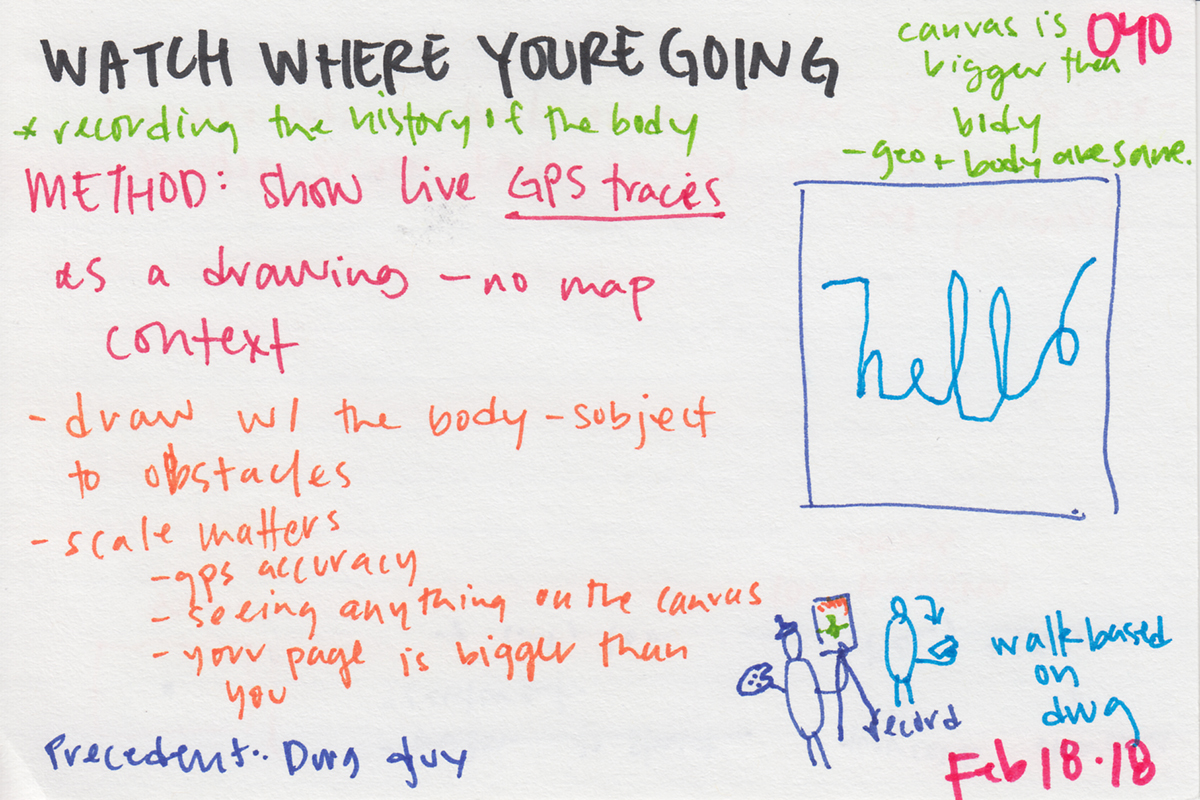 WATCH WHERE YOURE GOING
040
canvas is
bigger then
body
- geo + body awesome.
* recording the history of the body
METHOD: show live GPS traces
as a drawing - no map
context
hello
- draw w/ the body - subject
to obstacles
- scale matters
- gps accuracy
- seeing anything on the canvas
- your page is bigger than
you
record
walk based
on
dwg
Precedent: Dwg guy
Feb 18.18